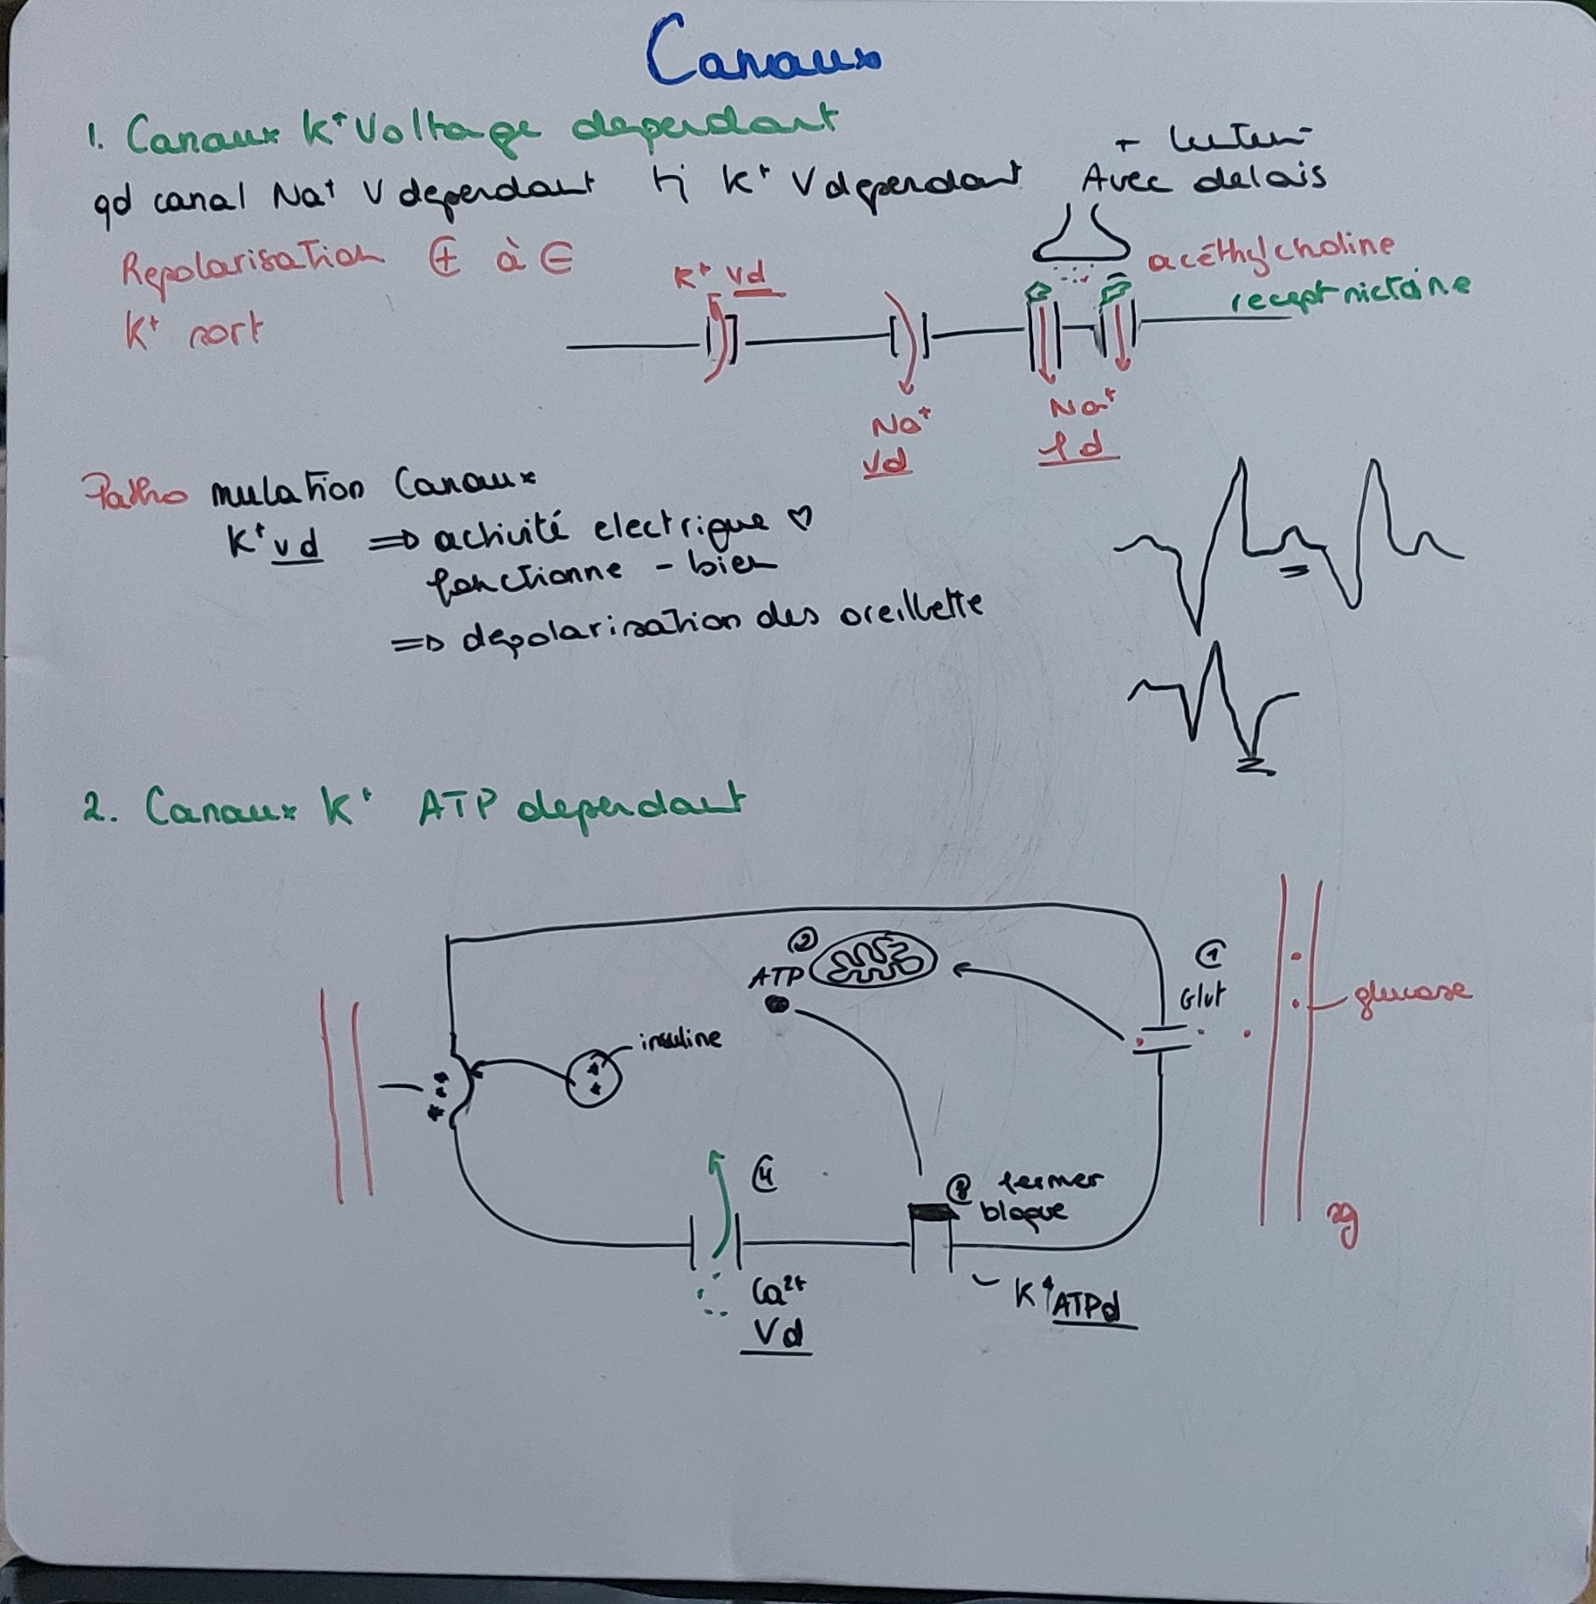 Canaux
1. Canaux K⁺ Voltage dependant
qd canal Na⁺ V dependant tj K⁺ V dependant
+ lentem
Avec delais
Repolarisation ⊕ à ⊖
K⁺ sort
K⁺ Vd
acéthylcholine
recept nictoine
Na⁺
Vd
Na⁺
Ld
Patho mutation Canaux
K⁺ vd ⇒ activité electrique ♡
fonctionne - bien
⇒ depolarisation des oreillette
2. Canaux K⁺ ATP dependant
②
ATP
①
Glut
glucose
insuline
④
③ fermer
bloque
sg
Ca²⁺
Vd
K⁺ ATPd